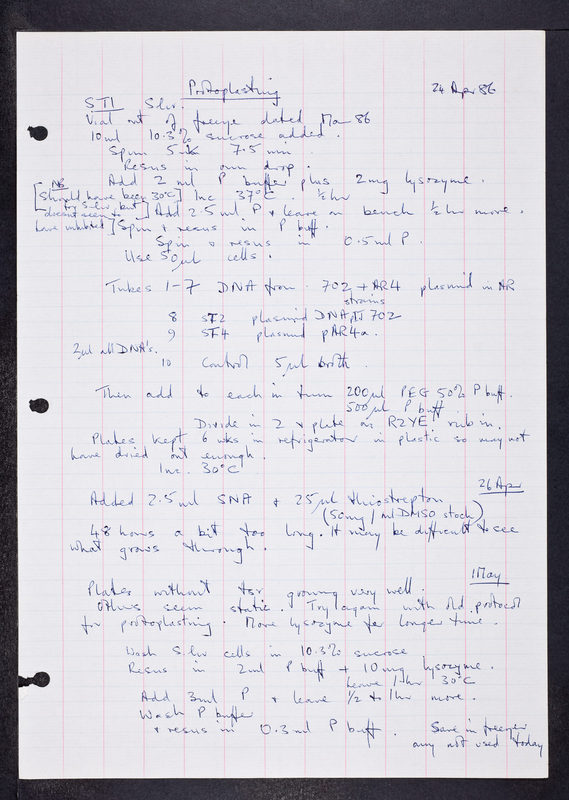 Protoplasting 24 Apr 86
ST1 S liv.
Vial out of freeze dated Mar 86
10ml 10.3% sucrose added.
Spin 5k 7.5 min
Resus in own drop.
Add 2 ml P buffer plus 2mg lysozyme.
NB
[Should have been 30°C] Inc 37°C. ½hr
for S liv, but
doesn't seem to] Add 2.5 ml P & leave on bench ½ hr more.
have inhibited] Spin & resus in P buff.
Spin & resus in 0.5ml P.
Use 50μl cells.
Tubes 1-7 DNA from 702 + AR4 plasmid in AR
strains
8 ST2 plasmid DNA pIJ 702
9 ST4 plasmid pAR4a.
2μl all DNA's.
10 Control 5μl broth.
Then add to each in turn 200μl PEG 50% P buff.
500μl P buff.
Divide in 2 & plate on R2YE rub in.
Plates kept 6 wks in refrigerator in plastic so may not
have dried out enough.
Inc. 30°C
26 Apr
Added 2.5ml SNA + 25μl thiostrepton
(50mg/ml DMSO stock)
48 hours a bit too long. It may be difficult to see
what grows through.
1 May
Plates without tsr growing very well.
Others seem static. Try again with old protocol
for protoplasting. More lysozyme for longer time.
Wash S liv cells in 10.3% sucrose
Resus in 2ml P buff + 10mg lysozyme.
Leave 1 hr 30°C
Add 3ml P & leave ½ to 1hr more.
Wash P buffer
& resus in 0.3ml P buff. Save in freezer
any not used today